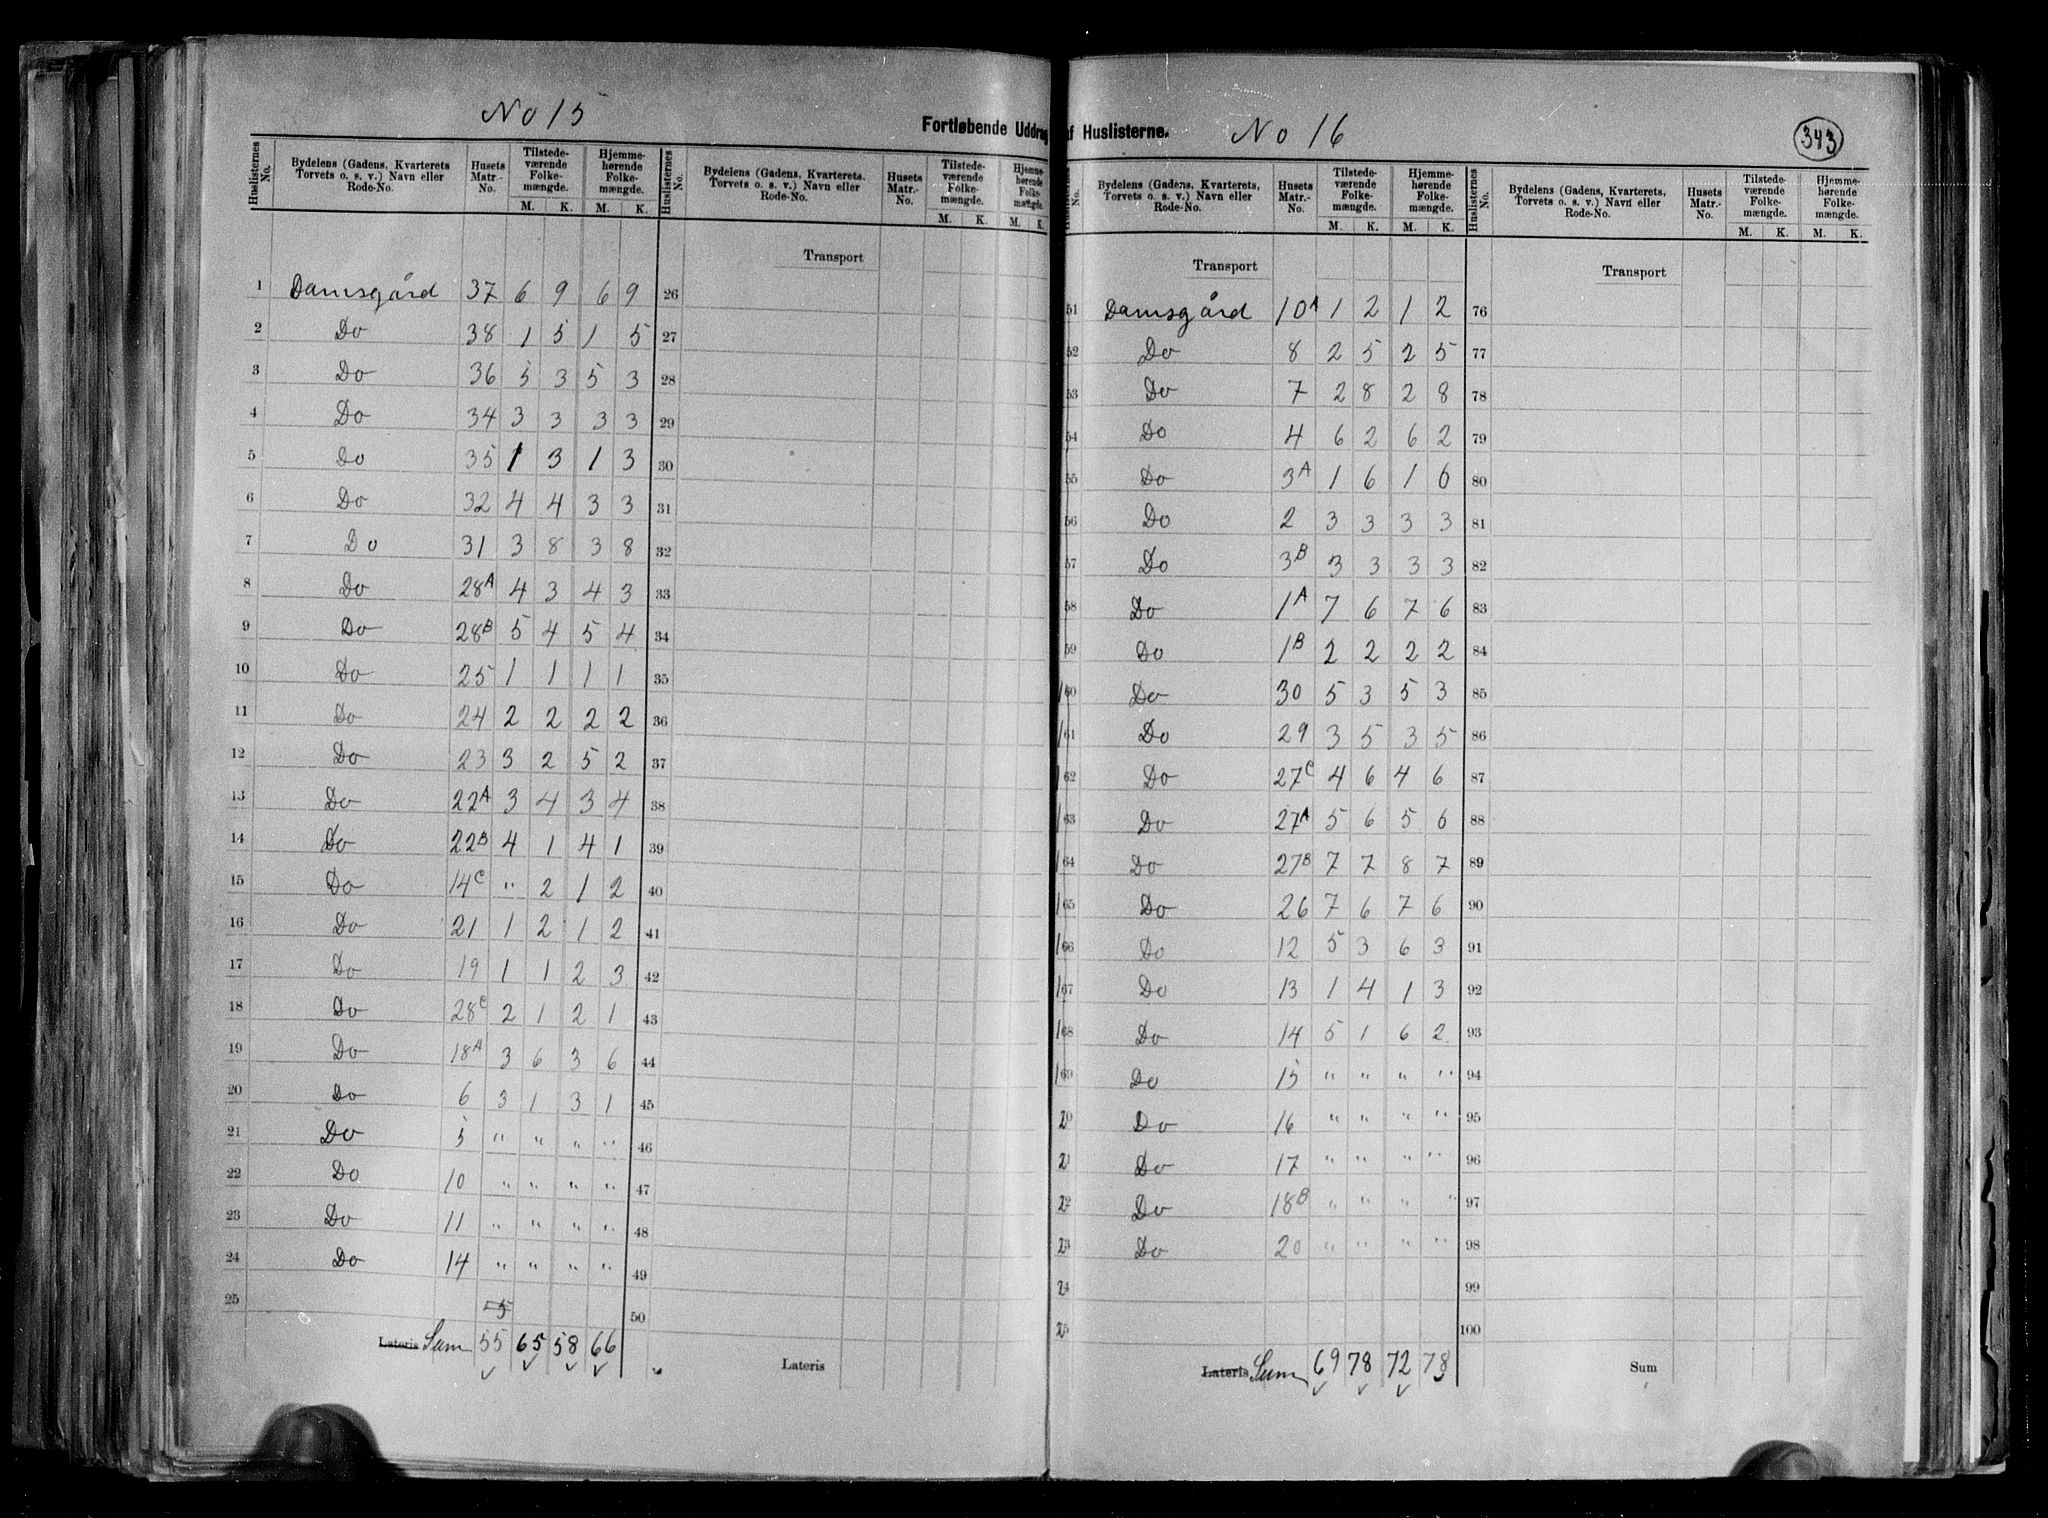 No 15
Fortløbende Uddrag af Huslisterne.
No 16
343
Huslisternes No. | Bydelens (Gadens, Kvarterets Torvets o. s. v.) Navn eller Rode-No. | Husets Matr.-No. | Tilstedeværende Folkemængde. M. K. | Hjemmehørende Folkemængde. M. K.
1 Damsgård 37 6 9 6 9
2 Do 38 1 5 1 5
3 Do 36 5 3 5 3
4 Do 34 3 3 3 3
5 Do 35 1 3 1 3
6 Do 32 4 4 3 3
7 Do 31 3 8 3 8
8 Do 28A 4 3 4 3
9 Do 28B 5 4 5 4
10 Do 25 1 1 1 1
11 Do 24 2 2 2 2
12 Do 23 3 2 5 2
13 Do 22A 3 4 3 4
14 Do 22B 4 1 4 1
15 Do 14C " 2 1 2
16 Do 21 1 2 1 2
17 Do 19 1 1 2 3
18 Do 28C 2 1 2 1
19 Do 18A 3 6 3 6
20 Do 6 3 1 3 1
21 Do 5 " " " "
22 Do 10 " " " "
23 Do 11 " " " "
24 Do 14 " " " "
25
Lateris Sum 55 65 58 66
Huslisternes No. | Bydelens (Gadens, Kvarterets, Torvets o. s. v.) Navn eller Rode-No. | Husets Matr.-No. | Tilstedeværende Folkemængde. M. K. | Hjemmehørende Folkemængde. M. K.
Transport
26
27
28
29
30
31
32
33
34
35
36
37
38
39
40
41
42
43
44
45
46
47
48
49
50
Lateris
No. | Bydelens (Gadens, Kvarterets, Torvets o. s. v.) Navn eller Rode-No. | Husets Matr.-No. | Tilstedeværende Folkemængde. M. K. | Hjemmehørende Folkemængde. M. K.
Transport
51 Damsgård 10A 1 2 1 2
52 Do 8 2 5 2 5
53 Do 7 2 8 2 8
54 Do 4 6 2 6 2
55 Do 3A 1 6 1 6
56 Do 2 3 3 3 3
57 Do 3B 3 3 3 3
58 Do 1A 7 6 7 6
59 Do 1B 2 2 2 2
60 Do 30 5 3 5 3
61 Do 29 3 5 3 5
62 Do 27C 4 6 4 6
63 Do 27A 5 6 5 6
64 Do 27B 7 7 8 7
65 Do 26 7 6 7 6
66 Do 12 5 3 6 3
67 Do 13 1 4 1 3
68 Do 14 5 1 6 2
69 Do 15 " " " "
20 Do 16 " " " "
21 Do 17 " " " "
22 Do 18B " " " "
23 Do 20 " " " "
24
25
Lateris Sum 69 78 72 78
Huslisternes No. | Bydelens (Gadens, Kvarterets, Torvets o. s. v.) Navn eller Rode-No. | Husets Matr.-No. | Tilstedeværende Folkemængde. M. K. | Hjemmehørende Folkemængde. M. K.
Transport
76
77
78
79
80
81
82
83
84
85
86
87
88
89
90
91
92
93
94
95
96
97
98
99
100
Sum